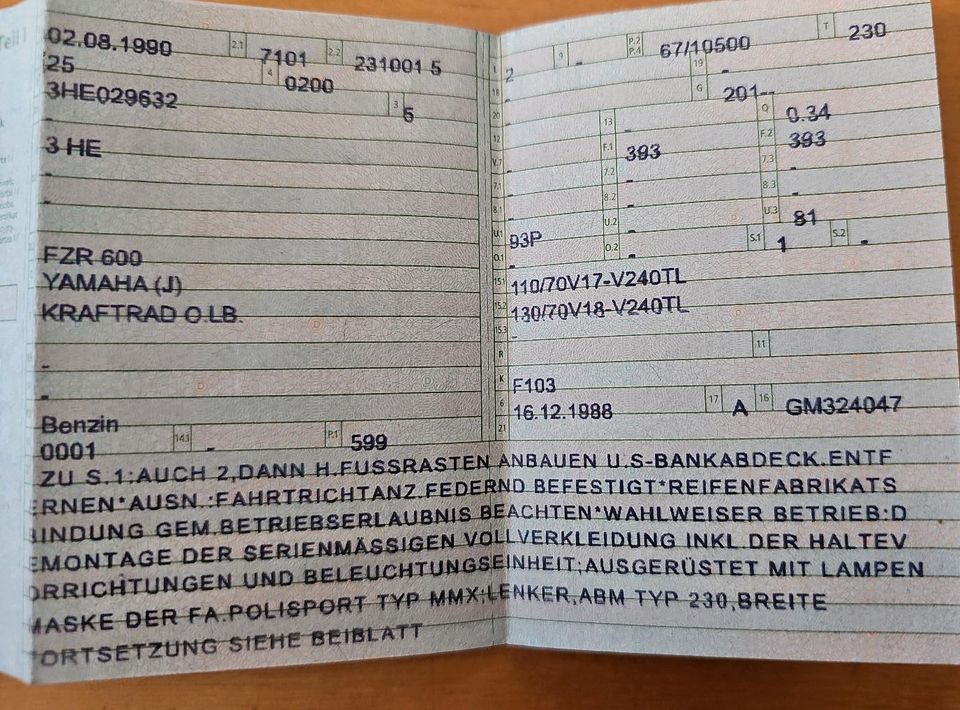 Teil I
02.08.1990 2.1 7101 2.2 231001 5
25 4 0200
3HE029632 3 5
-
3 HE
-
-
FZR 600
YAMAHA (J)
KRAFTRAD O.LB.
-
-
Benzin
0001 14.1 - P.1 599
L 2 9 - P.2 P.4 67/10500 T 230
18 - 19 -
20 - G 201--
12 - 13 - Q 0.34
V.7 - F.1 393 F.2 393
7.1 - 7.2 - 7.3 -
8.1 - 8.2 - 8.3 -
U.1 93P U.2 - U.3 81
O.1 - O.2 - S.1 1 S.2 -
15.1 110/70V17-V240TL
15.2 130/70V18-V240TL
15.3 -
R - 11
K F103
6 16.12.1988 17 A 16 GM324047
21
ZU S.1:AUCH 2,DANN H.FUSSRASTEN ANBAUEN U.S-BANKABDECK.ENTF
ERNEN*AUSN.:FAHRTRICHTANZ.FEDERND BEFESTIGT*REIFENFABRIKATS
BINDUNG GEM.BETRIEBSERLAUBNIS BEACHTEN*WAHLWEISER BETRIEB:D
EMONTAGE DER SERIENMÄSSIGEN VOLLVERKLEIDUNG INKL.DER HALTEV
ORRICHTUNGEN UND BELEUCHTUNGSEINHEIT;AUSGERÜSTET MIT LAMPEN
MASKE DER FA.POLISPORT TYP MMX;LENKER,ABM TYP 230,BREITE
FORTSETZUNG SIEHE BEIBLATT